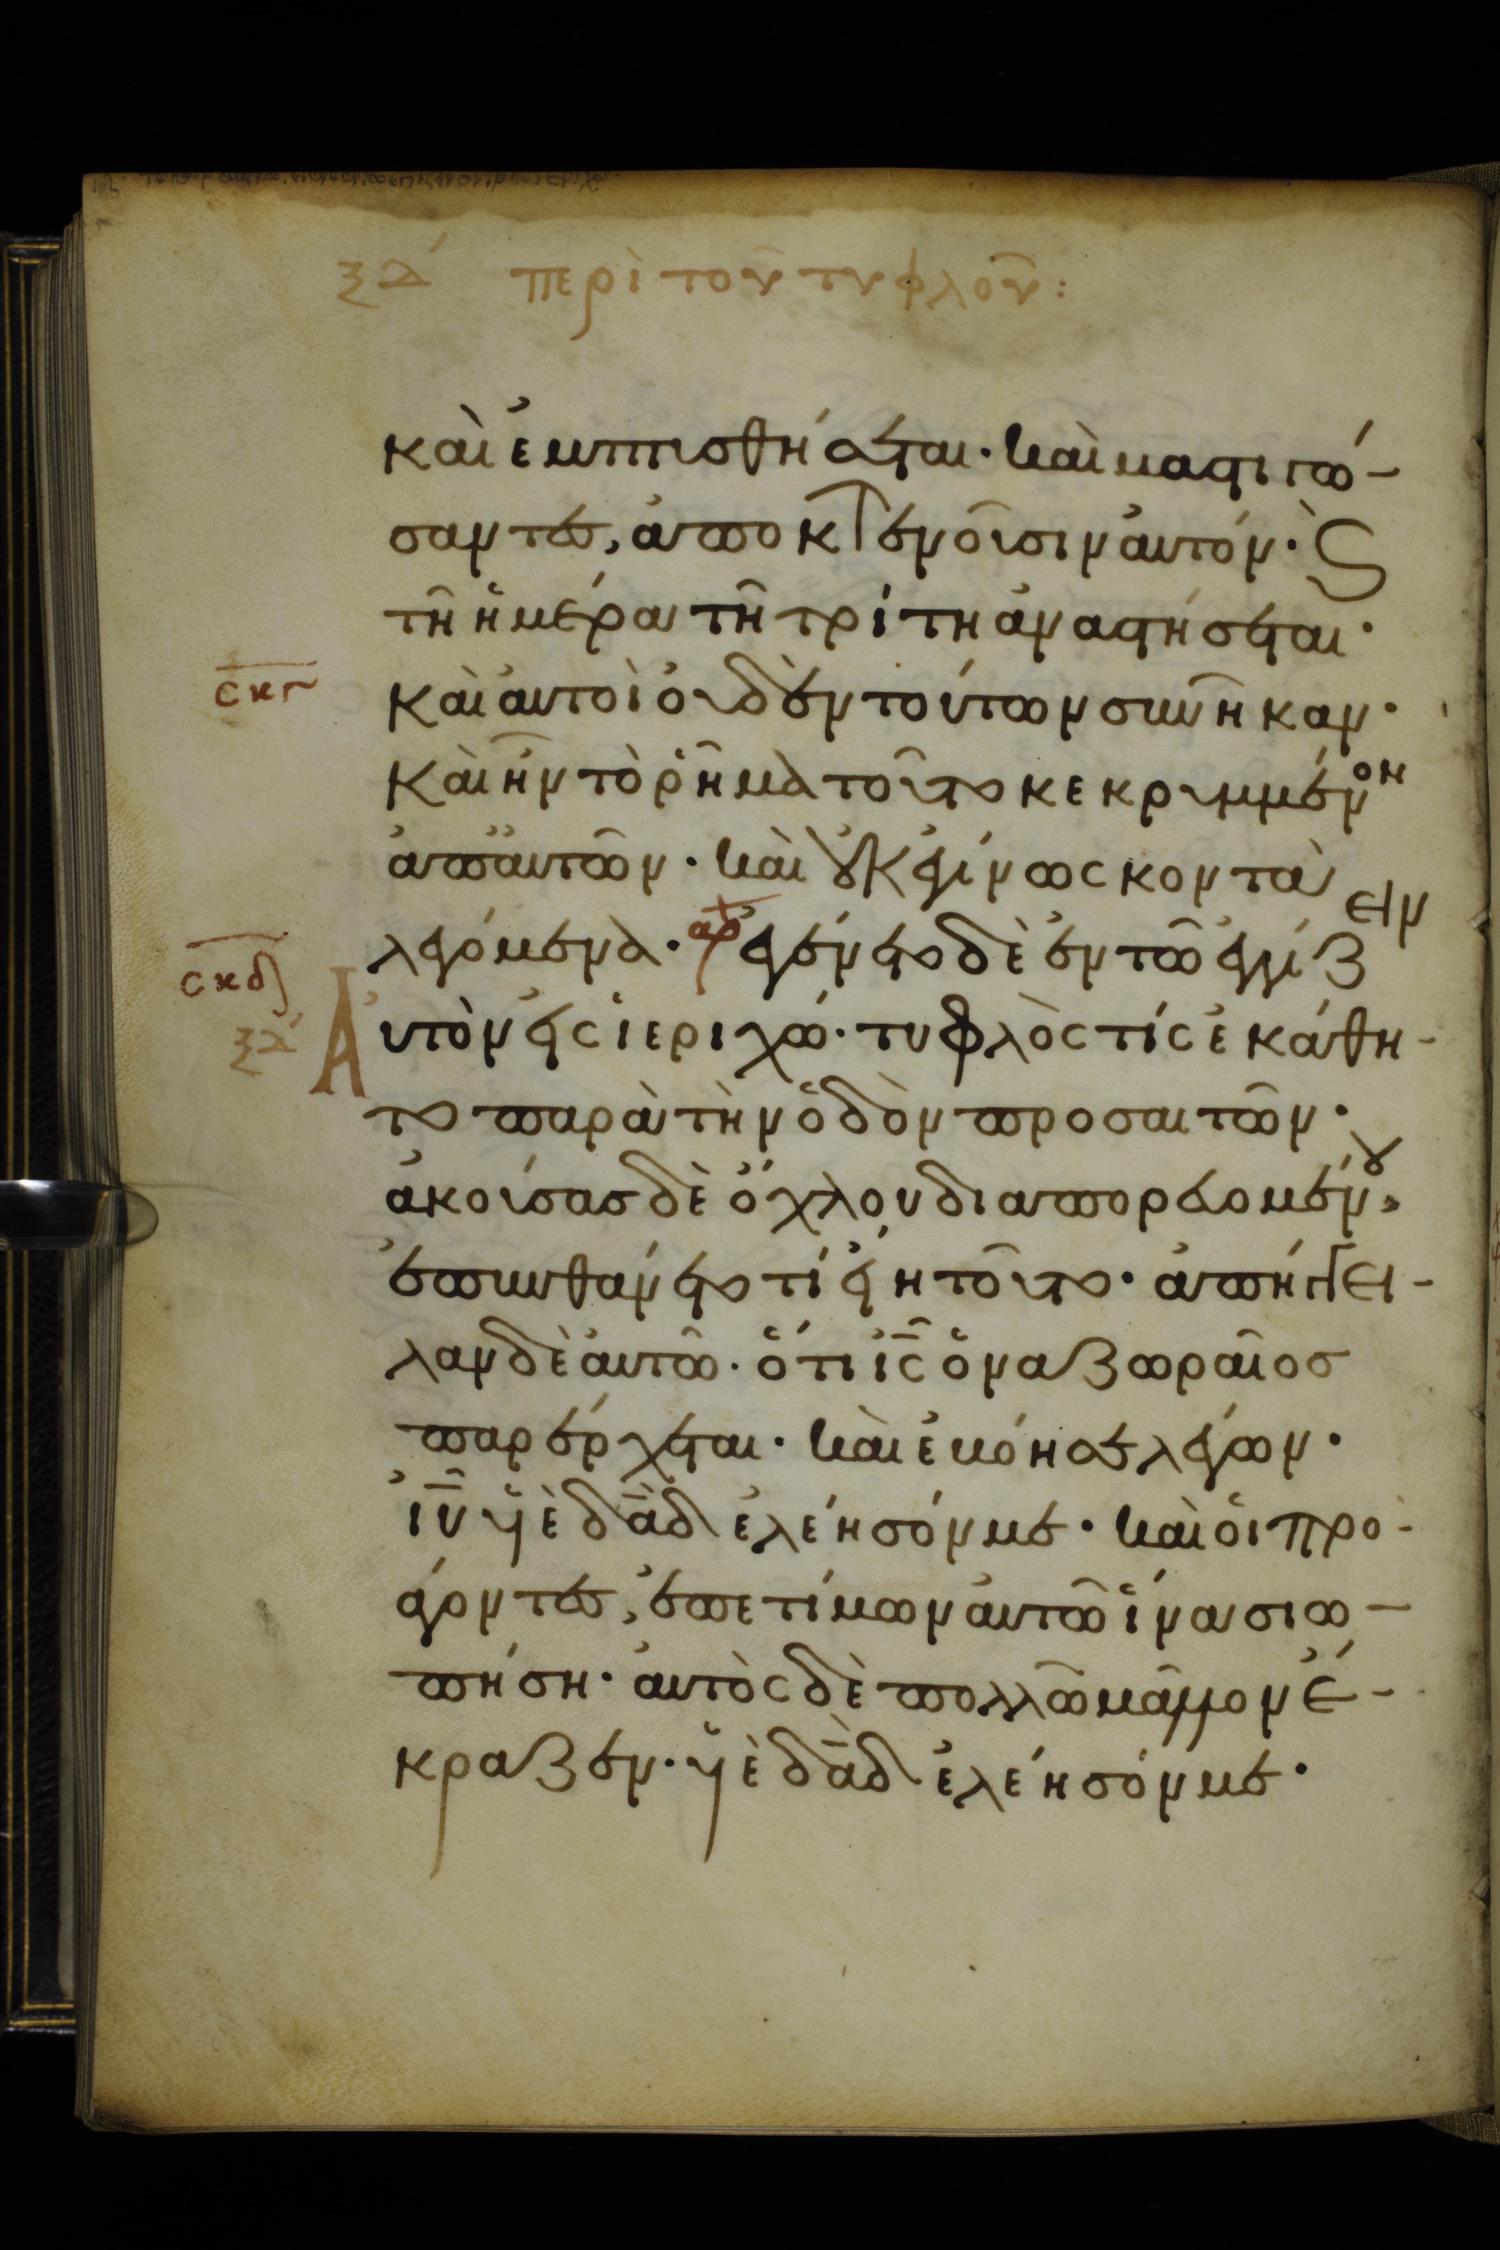 ξδ́ περὶ τοῦ τυφλοῦ:
καὶ ἐμπτυσθήσεται· καὶ μαστιγώ-
σαντες, ἀποκτενοῦσιν αὐτόν· Ϛ̀
τῆ ἡμέρα τῆ τρίτη ἀναστήσεται·
σκγ
καὶ αὐτοὶ οὐδὲν τούτων συνῆκαν·
καὶ ἦν τὸ ῥῆμα τοῦτο κεκρυμμένον
ἀπ αὐτῶν· καὶ οὐκ ἐγίνωσκον τὰ
λεγόμενα· αρχ ἐγένετο δὲ ἐν τῶ ἐγγίζειν
σκδ
ξδ́
Αὐτὸν εἰς ἱεριχώ· τυφλὸς τίς ἐκάθη-
το παρὰ τὴν ὁδὸν προσαιτῶν·
ἀκούσας δὲ ὄχλου διαπορευομένου,
ἐπυνθάνετο τί εἴη τοῦτο· ἀπήγγει-
λαν δὲ αὐτῶ· ὅτι ἰς ὁ ναζωραῖος
παρέρχεται· καὶ ἐβόησε λέγων·
ἰυ υἱὲ δαδ ἐλέησόν με· καὶ οἱ προ-
άγοντες, ἐπετίμων αὐτῶ ἵνα σιω-
πήση· αὐτὸς δὲ πολλῶ μᾶλλον ἔ-
κραζεν· υἱὲ δαδ ἐλέησόν με·